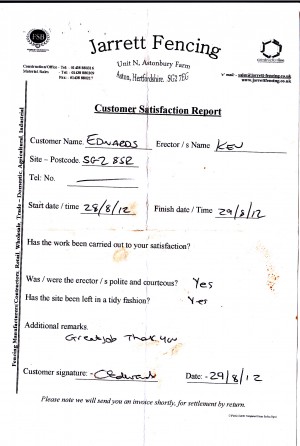 FSB
Jarrett Fencing
Unit N, Astonbury Farm
Aston, Hertfordshire. SG2 7EG
Construction/Office - Tel
Material Sales - Tel
Fax
e' mail - sales@jarrett-fencing.co.uk
www.jarrettfencing.co.uk
Customer Satisfaction Report
Customer Name. EDWARDS Erector / s Name KEV
Site – Postcode. SG2 8SR
Tel: No.
Start date / time 28/8/12 Finish date / Time 29/8/12
Has the work been carried out to your satisfaction?
Was / were the erector / s polite and courteous? Yes
Has the site been left in a tidy fashion? Yes
Additional remarks.
Great job Thank you
Customer signature: - CEdwards Date: - 29/8/12
Please note we will send you an invoice shortly, for settlement by return.
Fencing Manufacturers/Contractors, Retail, Wholesale, Trade – Domestic, Agricultural, Industrial